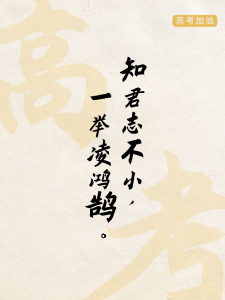 高考加油
高考
知君志不小，
一举凌鸿鹄。